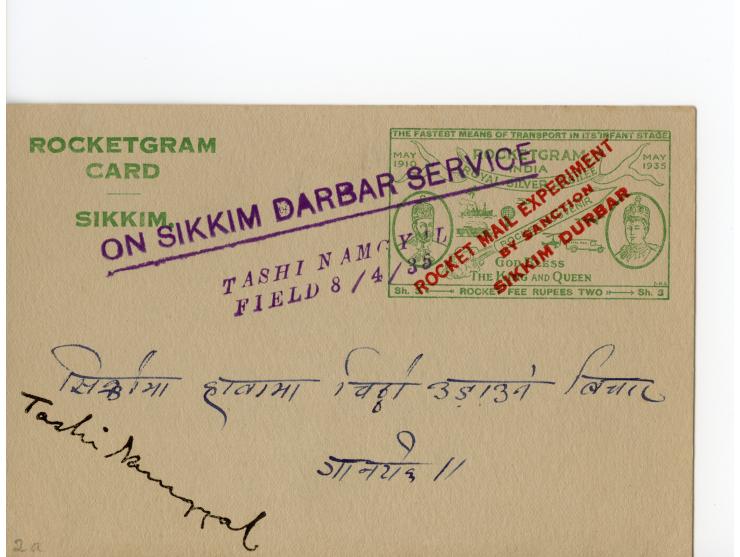 ROCKETGRAM
CARD
SIKKIM
ON SIKKIM DARBAR SERVICE
TASHI NAMGYAL
FIELD 8/4/35
THE FASTEST MEANS OF TRANSPORT IN ITS INFANT STAGE
MAY 1910
ROCKETGRAM
INDIA
MAY 1935
ROYAL SILVER
ROCKET MAIL EXPERIMENT
BY SANCTION
SIKKIM DURBAR
GOD BLESS
THE KING AND QUEEN
Sh. 3 ROCKET FEE RUPEES TWO Sh. 3
सिक्कीममा हावामा चिठ्ठी उड़ाउने बिचार
Tashi Namgyal
2a